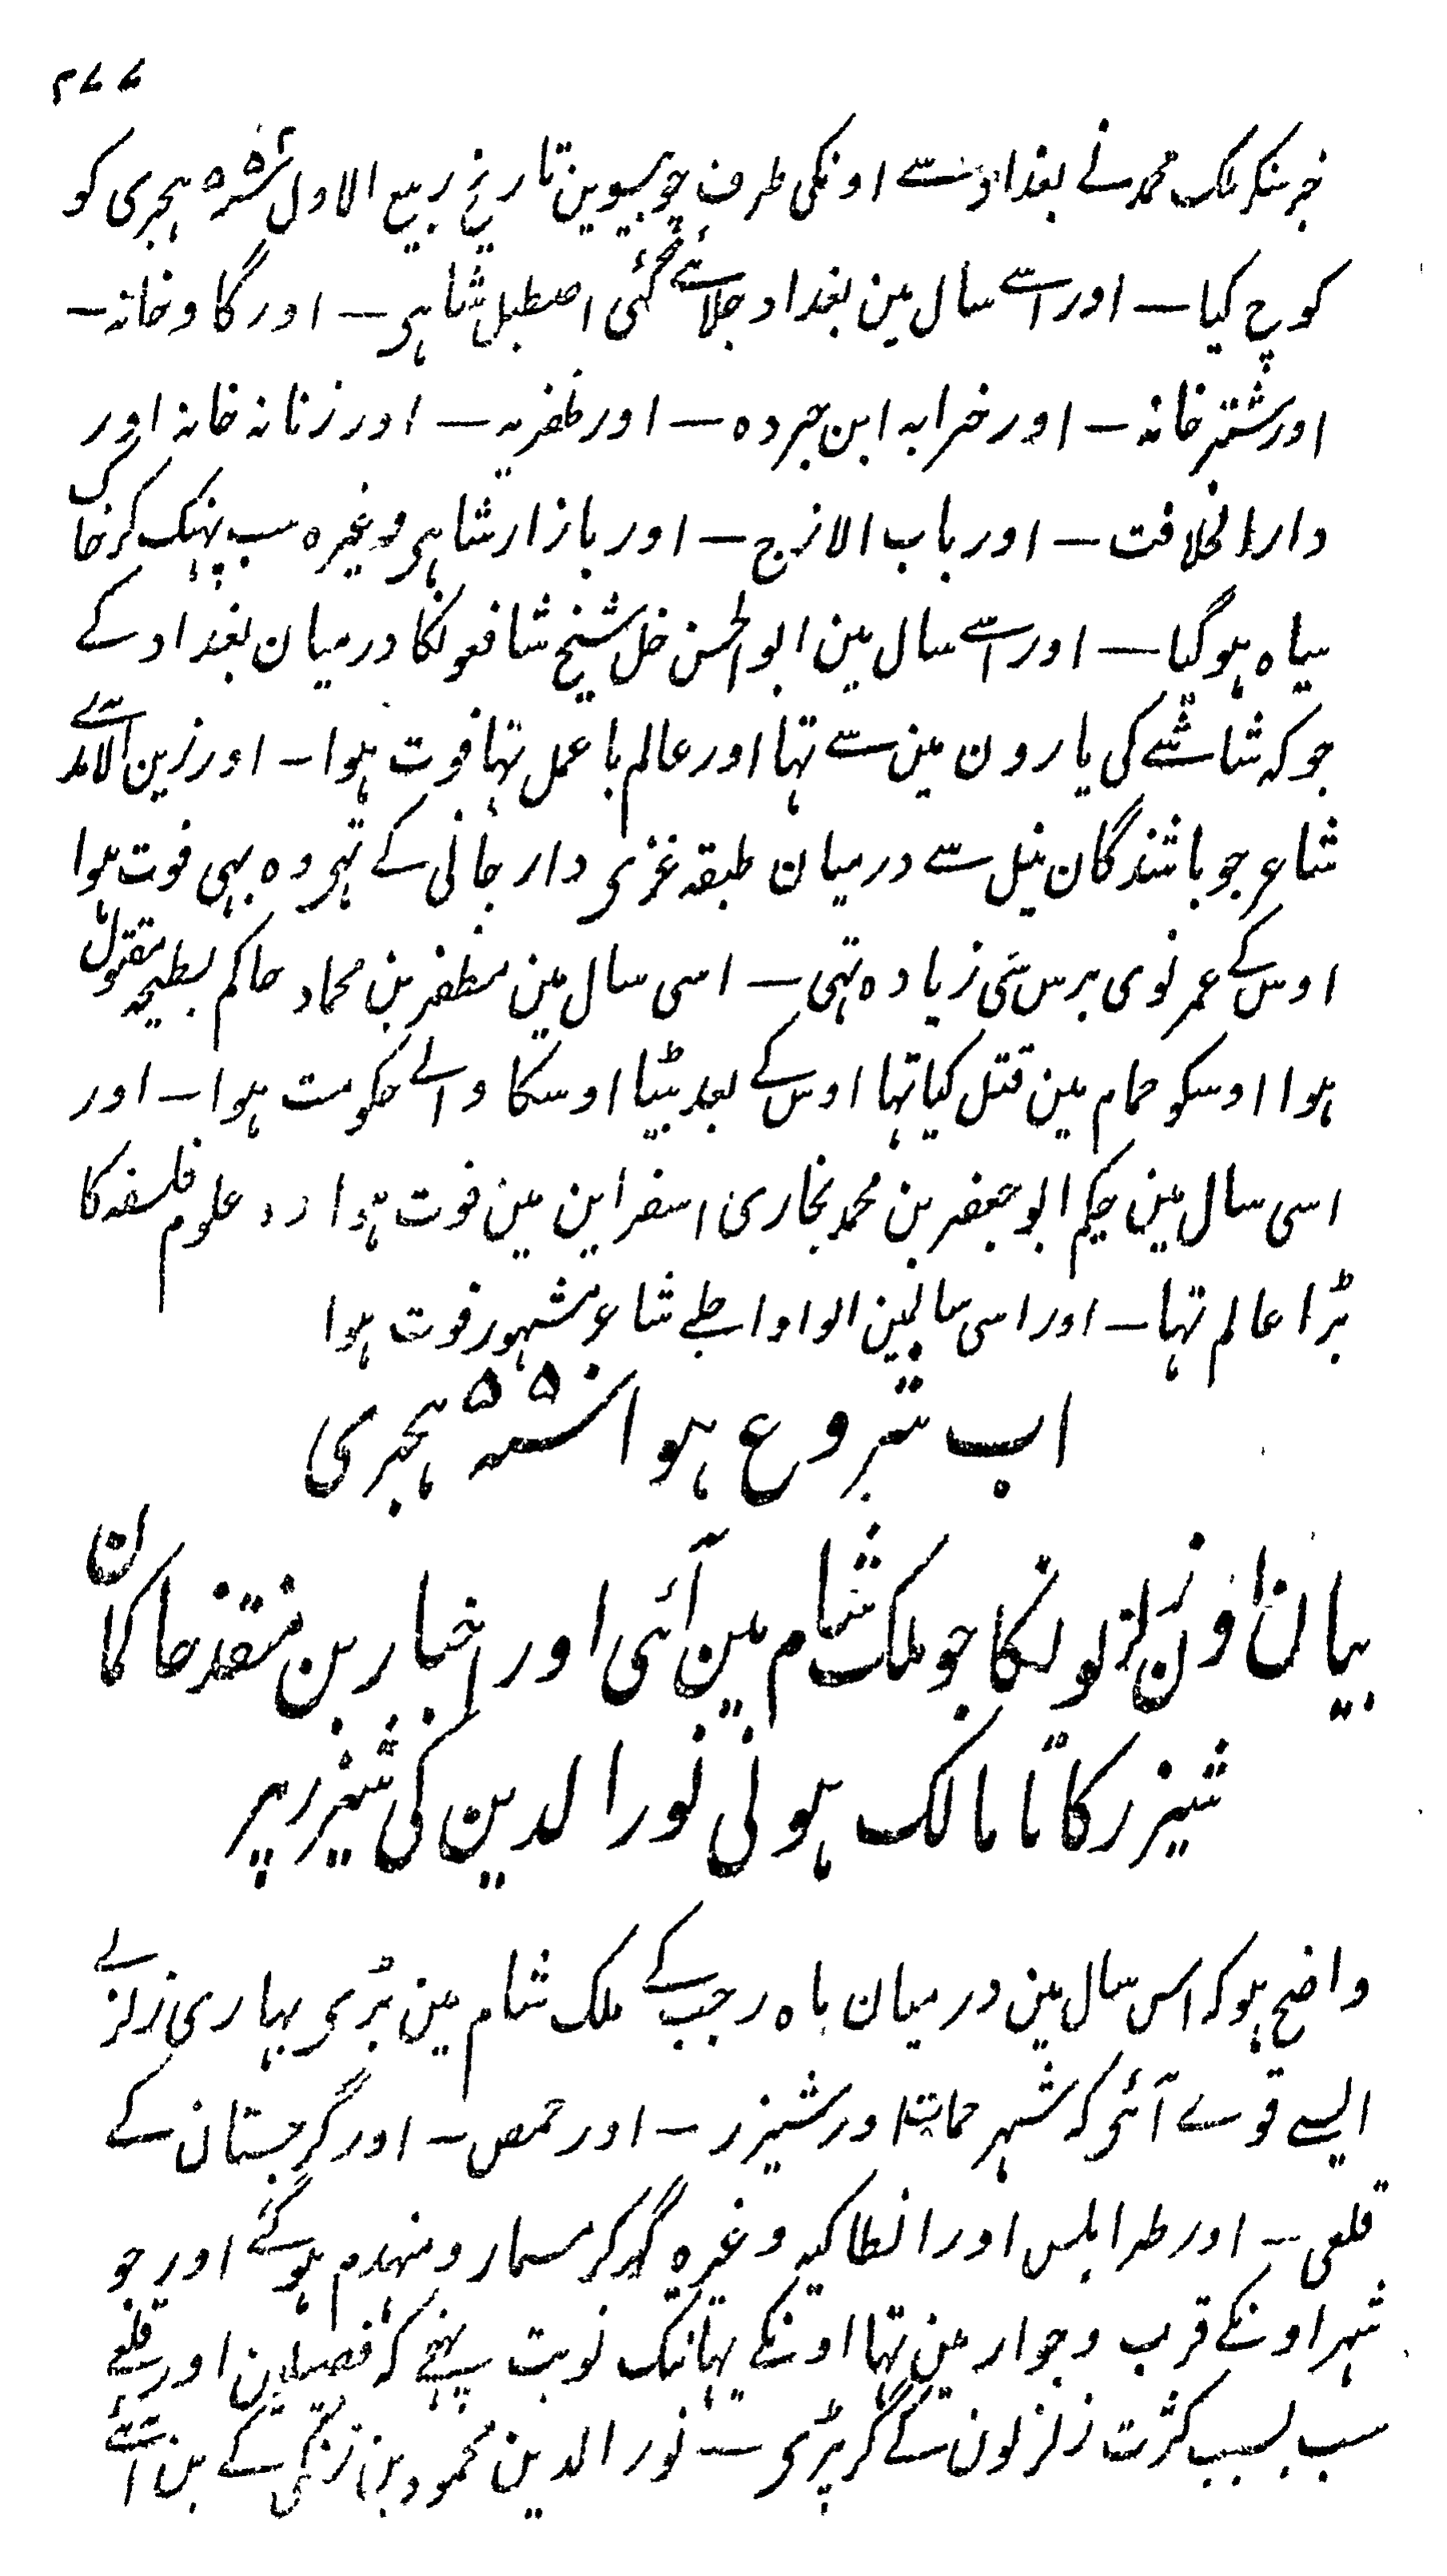 ۲۷۷
خبر سنکر ملک محمد نے بغداد سے اونکی طرف چوبیسوین تاریخ ربیع الاول ۵۵۲ ہجری کو
کوچ کیا ــ اور اسے سال مین بغداد جلائے گئی اصطبل شاہی ــ اور گاوخانہ ــ
اور شتر خانہ ــ اور خرابہ ابن جردہ ــ اور ظفریہ ــ اور زنانہ خانہ اور
دارالخلافت ــ اور باب الازج ــ اور بازار شاہی وغیرہ سب پہنک کر خاک
سیاہ ہو گیا ــ اور اسے سال مین ابوالحسن خل شیخ شافعونکا درمیان بغداد کے
جو کہ شاشے کی یارون مین سے تہا اور عالم با عمل تہا فوت ہوا ــ اور زین الآمدے
شاعر جو باشندگان نیل سے درمیان طبقہ غزی دار جانی کے تہی وہ بہی فوت ہوا
اوس کے عمر نوی برس سی زیادہ تہی ــ اسی سال مین مظفر بن محماد حاکم بطیحہ مقتول
ہوا اوسکو حمام مین قتل کیا تہا اوس کے بعد بیٹا اوسکا والے حکومت ہوا ــ اور
اسی سال مین حکیم ابو جعفر بن محمد بخاری اسفراین مین فوت ہوا علوم فلسفہ کا
بڑا عالم تہا ــ اور اسی سالمین الواواطے شاعر مشہور فوت ہوا
اب شروع ہوا ۵۵۲ ہجری
بیان اون زلزلونکا جو ملک شام مین آئی اور اخبار بن منقذ حاکمان
شیزر کا تا مالک ہونی نور الدین کی شیزر پر
واضح ہو کہ اس سال مین درمیان ماہ رجب کے ملک شام مین بڑی بہاری زلزلے
ایسے قوے آئی کہ شہر حمایتہ اور شیزر ــ اور حمص ــ اور گرجستان کے
قلعی ــ اور طرابلس اور انطاکیہ وغیرہ گر کر مسمار و منہدم ہو گئے اور جو
شہر اونکے قرب و جوار مین تہا اونکے یہانتک نوبت پہنچے کہ فصیلین اور قلعے
سب بسبب کثرت زلزلون کے گر پڑی ــ نور الدین محمود بن زنگی کے بن آئے